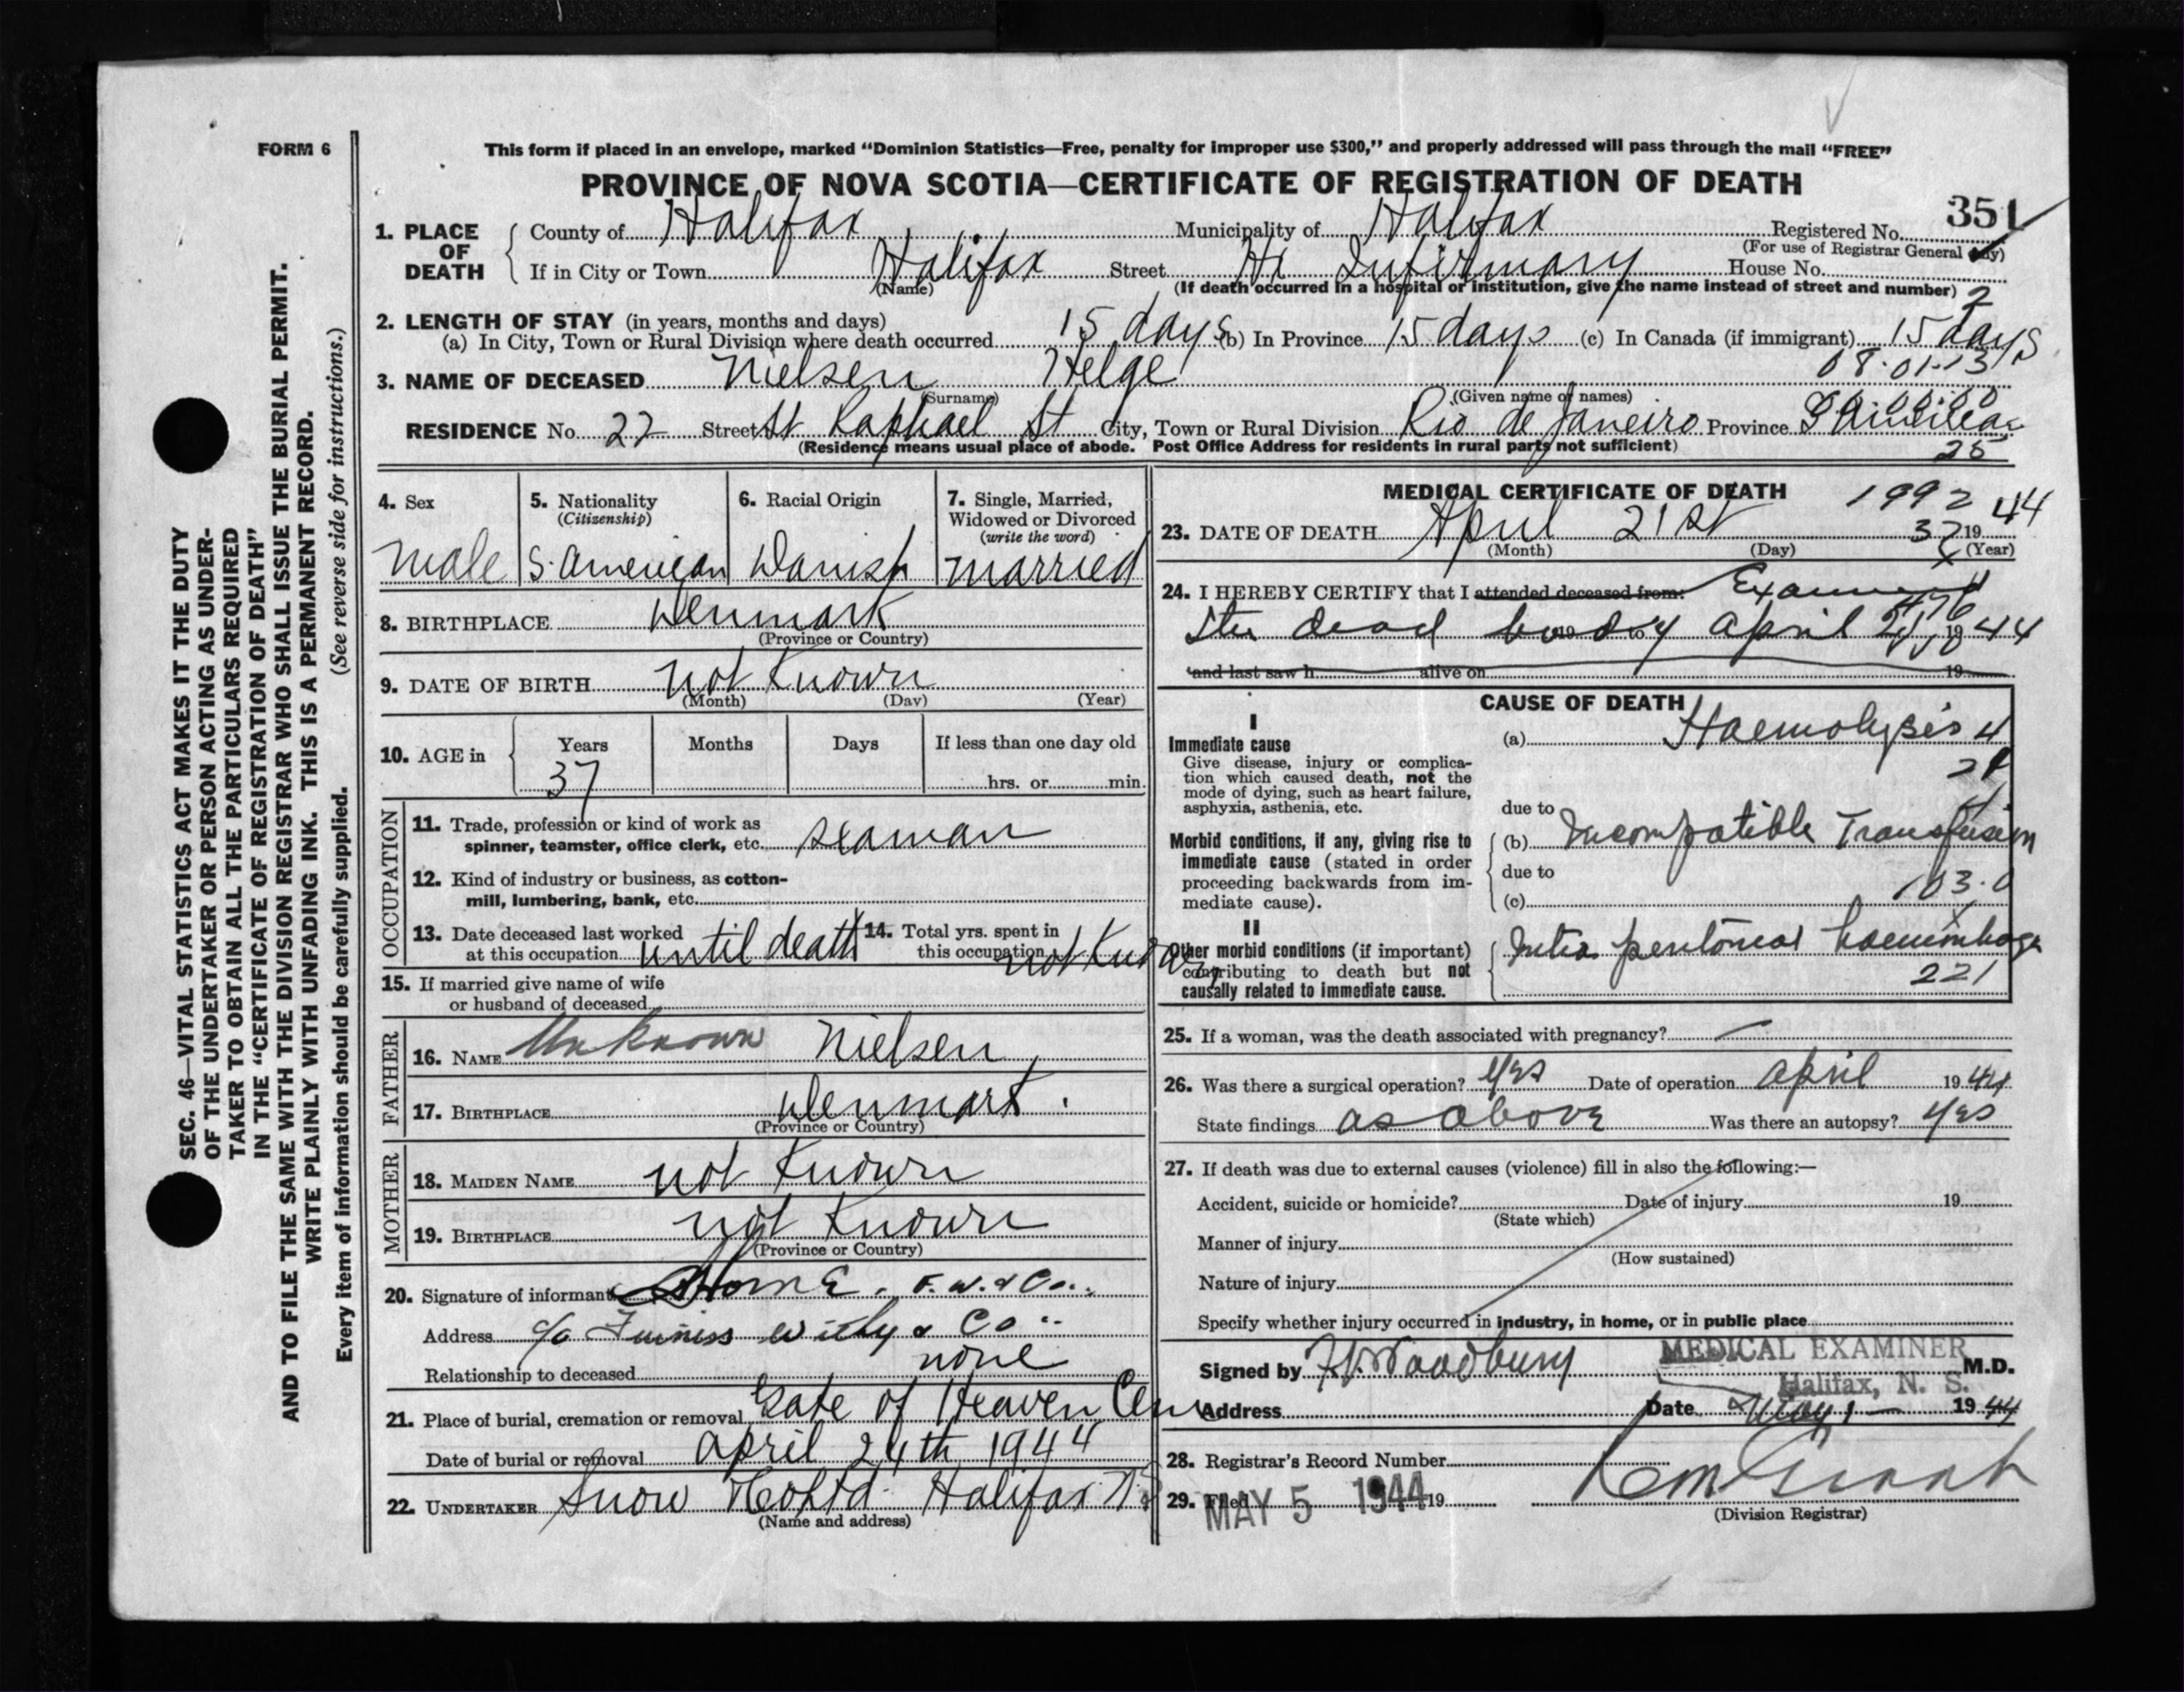 FORM 6
This form if placed in an envelope, marked “Dominion Statistics—Free, penalty for improper use $300,” and properly addressed will pass through the mail “FREE”
PROVINCE OF NOVA SCOTIA—CERTIFICATE OF REGISTRATION OF DEATH
351
1. PLACE OF DEATH County of Halifax Municipality of Halifax Registered No.
(For use of Registrar General only)
If in City or Town Halifax Street Hx Infirmary House No.
(Name) (If death occurred in a hospital or institution, give the name instead of street and number) 2
2. LENGTH OF STAY (in years, months and days)
(a) In City, Town or Rural Division where death occurred 15 days (b) In Province 15 days (c) In Canada (if immigrant) 15 days
08.01.13
3. NAME OF DECEASED Nielsen Helge
(Surname) (Given name of names)
RESIDENCE No. 22 Street St Raphael St City, Town or Rural Division Rio de Janeiro Province
(Residence means usual place of abode. Post Office Address for residents in rural parts not sufficient)
25
4. Sex
male
5. Nationality
(Citizenship)
S. American
6. Racial Origin
Danish
7. Single, Married,
Widowed or Divorced
(write the word)
married
8. BIRTHPLACE Denmark
(Province or Country)
9. DATE OF BIRTH not Known
(Month) (Day) (Year)
10. AGE in Years Months Days If less than one day old
37 hrs. or min.
OCCUPATION
11. Trade, profession or kind of work as
spinner, teamster, office clerk, etc. seaman
12. Kind of industry or business, as cotton-
mill, lumbering, bank, etc.
13. Date deceased last worked
at this occupation until death
14. Total yrs. spent in
this occupation not Known
15. If married give name of wife
or husband of deceased
FATHER
16. NAME Unknown Nielsen
17. BIRTHPLACE Denmark.
(Province or Country)
MOTHER
18. MAIDEN NAME not Known
19. BIRTHPLACE not Known
(Province or Country)
20. Signature of informant F. W. & Co.
Address c/o Furniss Withy & Co
Relationship to deceased none
21. Place of burial, cremation or removal Gate of Heaven Cem
Date of burial or removal April 24th 1944
22. UNDERTAKER Snow & Co Ltd Halifax NS
(Name and address)
MEDICAL CERTIFICATE OF DEATH
1992
23. DATE OF DEATH April 21st 37 19 44
(Month) (Day) (Year)
24. I HEREBY CERTIFY that I attended deceased from: Examined
the dead body 19 to April 21 19 44
and last saw h alive on 19
CAUSE OF DEATH
I
Immediate cause
Give disease, injury or complica-
tion which caused death, not the
mode of dying, such as heart failure,
asphyxia, asthenia, etc.
(a) Haemolysis 4
due to
Morbid conditions, if any, giving rise to
immediate cause (stated in order
proceeding backwards from im-
mediate cause).
(b) Incompatible Transfusion
due to
103.0
(c)
II
Other morbid conditions (if important)
contributing to death but not
causally related to immediate cause.
Intra peritoneal haemorrhage
221
25. If a woman, was the death associated with pregnancy? —
26. Was there a surgical operation? yes Date of operation April 19 44
State findings as above Was there an autopsy? yes
27. If death was due to external causes (violence) fill in also the following:—
Accident, suicide or homicide? Date of injury 19
(State which)
Manner of injury
(How sustained)
Nature of injury
Specify whether injury occurred in industry, in home, or in public place
Signed by F. V. Woodbury MEDICAL EXAMINER M.D.
Halifax, N. S.
Address Date May 1 — 19 44
28. Registrar's Record Number
29. Filed MAY 5 1944 19
(Division Registrar)
SEC. 46—VITAL STATISTICS ACT MAKES IT THE DUTY
OF THE UNDERTAKER OR PERSON ACTING AS UNDER-
TAKER TO OBTAIN ALL THE PARTICULARS REQUIRED
IN THE “CERTIFICATE OF REGISTRATION OF DEATH”
AND TO FILE THE SAME WITH THE DIVISION REGISTRAR WHO SHALL ISSUE THE BURIAL PERMIT.
WRITE PLAINLY WITH UNFADING INK. THIS IS A PERMANENT RECORD.
Every item of information should be carefully supplied. (See reverse side for instructions.)